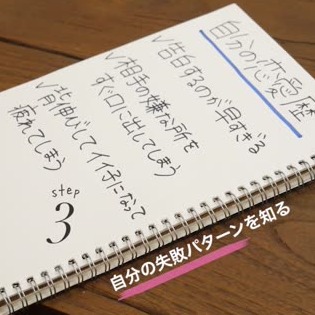 自分の恋愛歴
✓告白するのが早すぎる
✓相手の嫌な所を
すぐ口に出してしまう
✓背伸びしてイイ子になって
疲れてしまう
step
3
自分の失敗パターンを知る